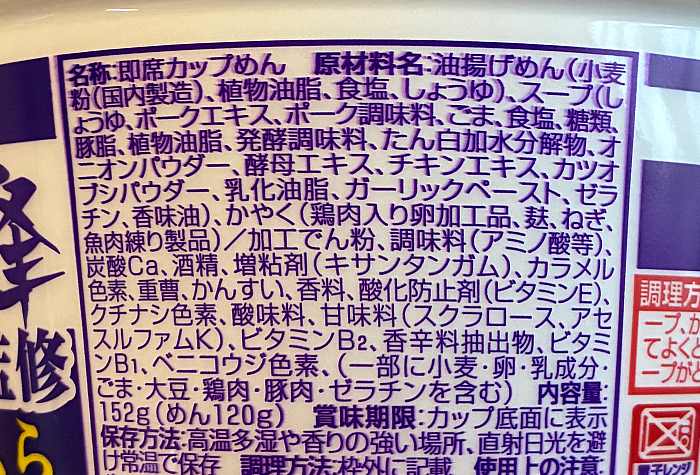 名称:即席カップめん 原材料名:油揚げめん(小麦
粉(国内製造)、植物油脂、食塩、しょうゆ)、スープ(し
ょうゆ、ポークエキス、ポーク調味料、ごま、食塩、糖類、
豚脂、植物油脂、発酵調味料、たん白加水分解物、オ
ニオンパウダー、酵母エキス、チキンエキス、カツオ
ブシパウダー、乳化油脂、ガーリックペースト、ゼラ
チン、香味油)、かやく(鶏肉入り卵加工品、麸、ねぎ、
魚肉練り製品)/加工でん粉、調味料(アミノ酸等)、
炭酸Ca、酒精、増粘剤(キサンタンガム)、カラメル
色素、重曹、かんすい、香料、酸化防止剤(ビタミンE)、
クチナシ色素、酸味料、甘味料(スクラロース、アセ
スルファムK)、ビタミンB2、香辛料抽出物、ビタミ
ンB1、ベニコウジ色素、(一部に小麦・卵・乳成分・
ごま・大豆・鶏肉・豚肉・ゼラチンを含む) 内容量:
152g(めん120g) 賞味期限:カップ底面に表示
保存方法:高温多湿や香りの強い場所、直射日光を避
け常温で保存 調理方法:枠外に記載 使用上の注意
修
ら
調理方
ープ、か
てよくと
ープがと